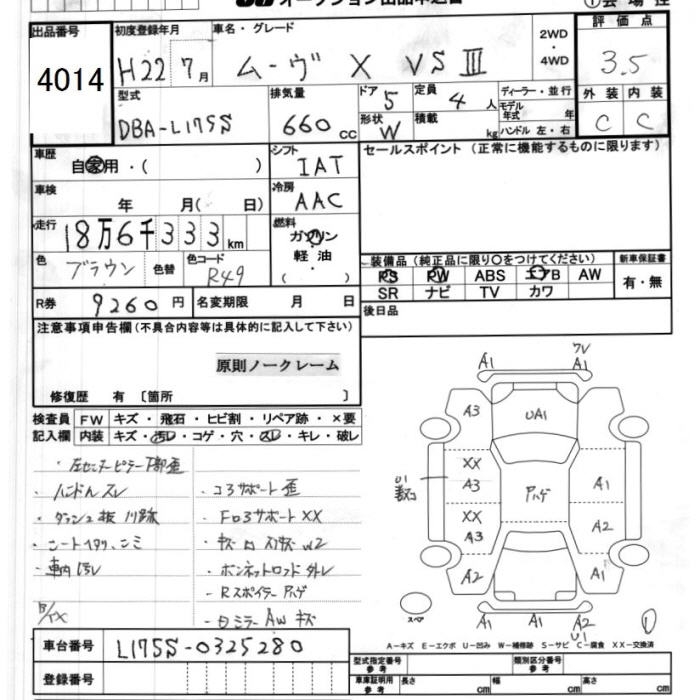 オークション出品申込書
① 会場控
出品番号
4014
初度登録年月
H22 7月
車名・グレード
ムーヴ X VS III
2WD
・
4WD
評価点
3.5
外装 内装
C C
型式
DBA-L175S
排気量
660cc
ドア
5
形状
W
定員
4人
積載
kg
ディーラー・並行
モデル年式 年
ハンドル 左・右
車歴
自家用・( )
シフト
IAT
車検
年 月( 日)
冷房
AAC
走行
18万6千333km
燃料
ガソリン
軽油
( ・ )
色
ブラウン
色替
色コード
R49
R券
9260円
名変期限 月 日
セールスポイント(正常に機能するものに限ります)
装備品(純正品に限り○をつけてください)
新車保証書
PS PW ABS エアB AW
SR ナビ TV カワ
有・無
後日品
注意事項申告欄(不具合内容等は具体的に記入して下さい)
原則ノークレーム
修復歴 有 〔箇所 〕
検査員
記入欄
FW キズ・飛石・ヒビ割・リペア跡・×要
内装 キズ・汚レ・コゲ・穴・スレ・キレ・破レ
・左センターピラー下部歪
・ハンドルスレ
・ダッシュ板
・シート
・車内汚レ
・コアサポート歪
・Fロアサポート XX
W2
・ボンネットロッド外レ
・Rスポイラー アハゲ
AW キズ
A1
A1
A3
UA1
XX
A3
XX
A3
A2
アハゲ
A1
A2
A1
U1
A1
A1
A2
U1
スペア
①
A−キズ E−エクボ U−凹み W−補修跡 S−サビ C−腐食 XX−交換済
車台番号
L175S-0325280
登録番号
型式指定番号
参考
類別区分番号
参考
車庫証明用
参考
長さ cm
幅 cm
高さ cm